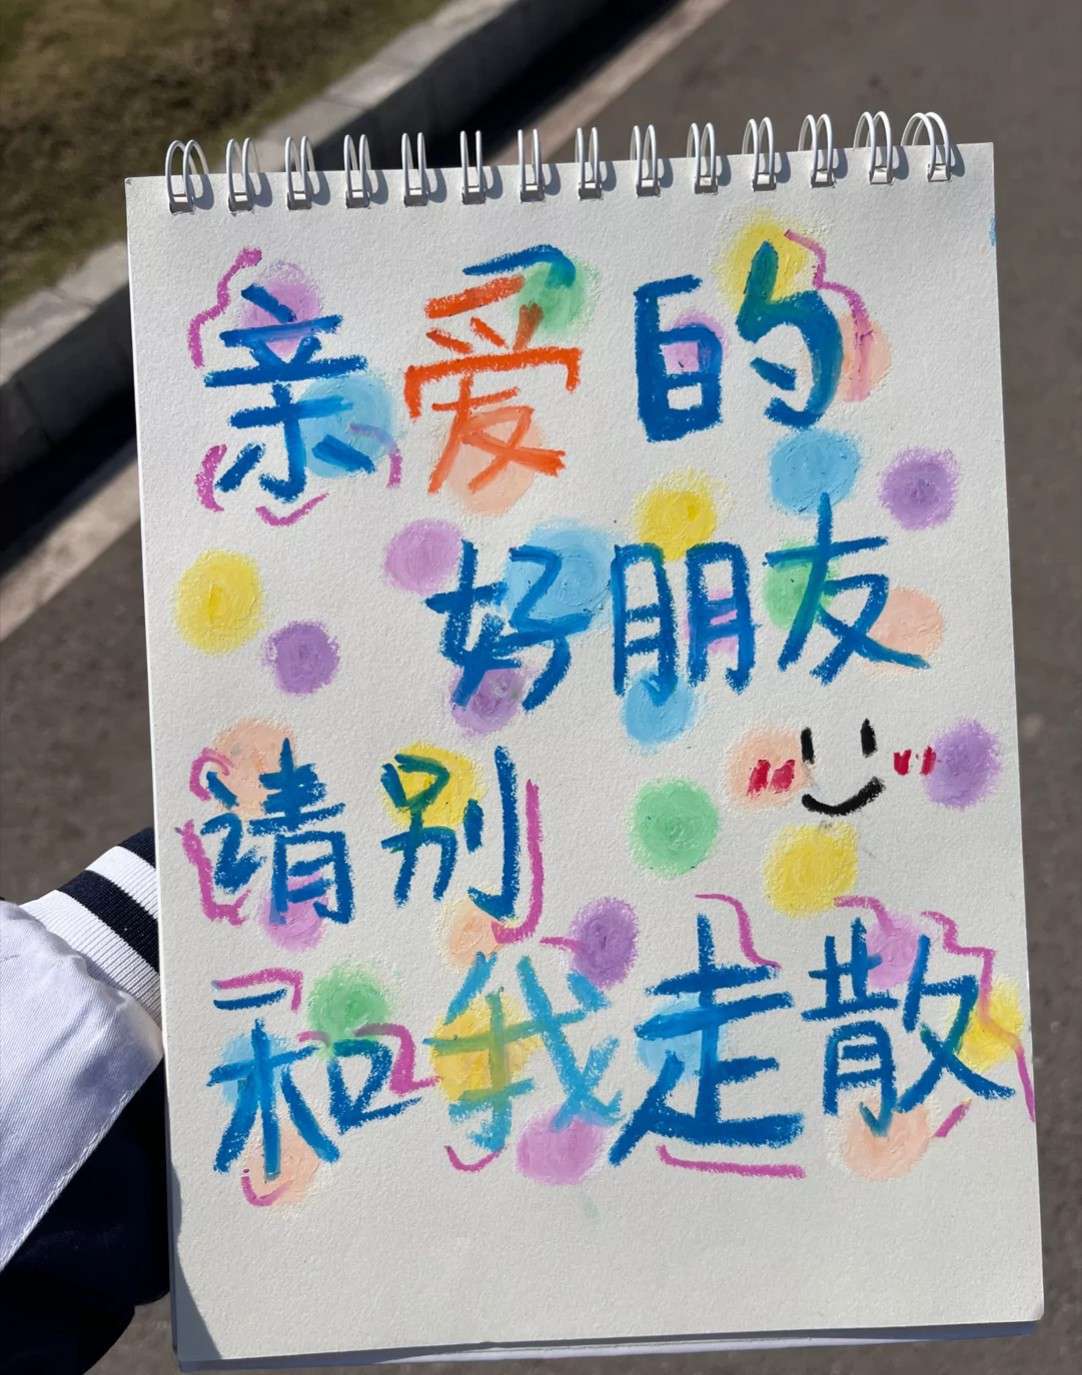 亲爱的
好朋友
请别
和我走散